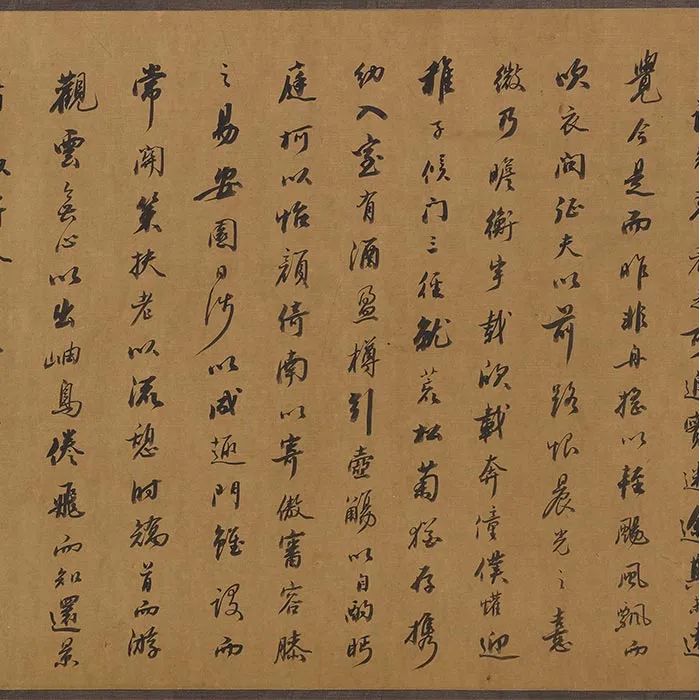 追實迷途其未遠
覺今是而昨非舟搖以輕颺風飄而
吹衣問征夫以前路恨晨光之熹
微乃瞻衡宇載欣載奔僮僕懽迎
稚子候门三徑就荒松菊猶存携
幼入室有酒盈樽引壺觴以自酌眄
庭柯以怡顏倚南以寄傲審容膝
之易安園日涉以成趣門雖設而
常関策扶老以流憩时矯首而游
觀雲無心以出岫鳥倦飛而知還景